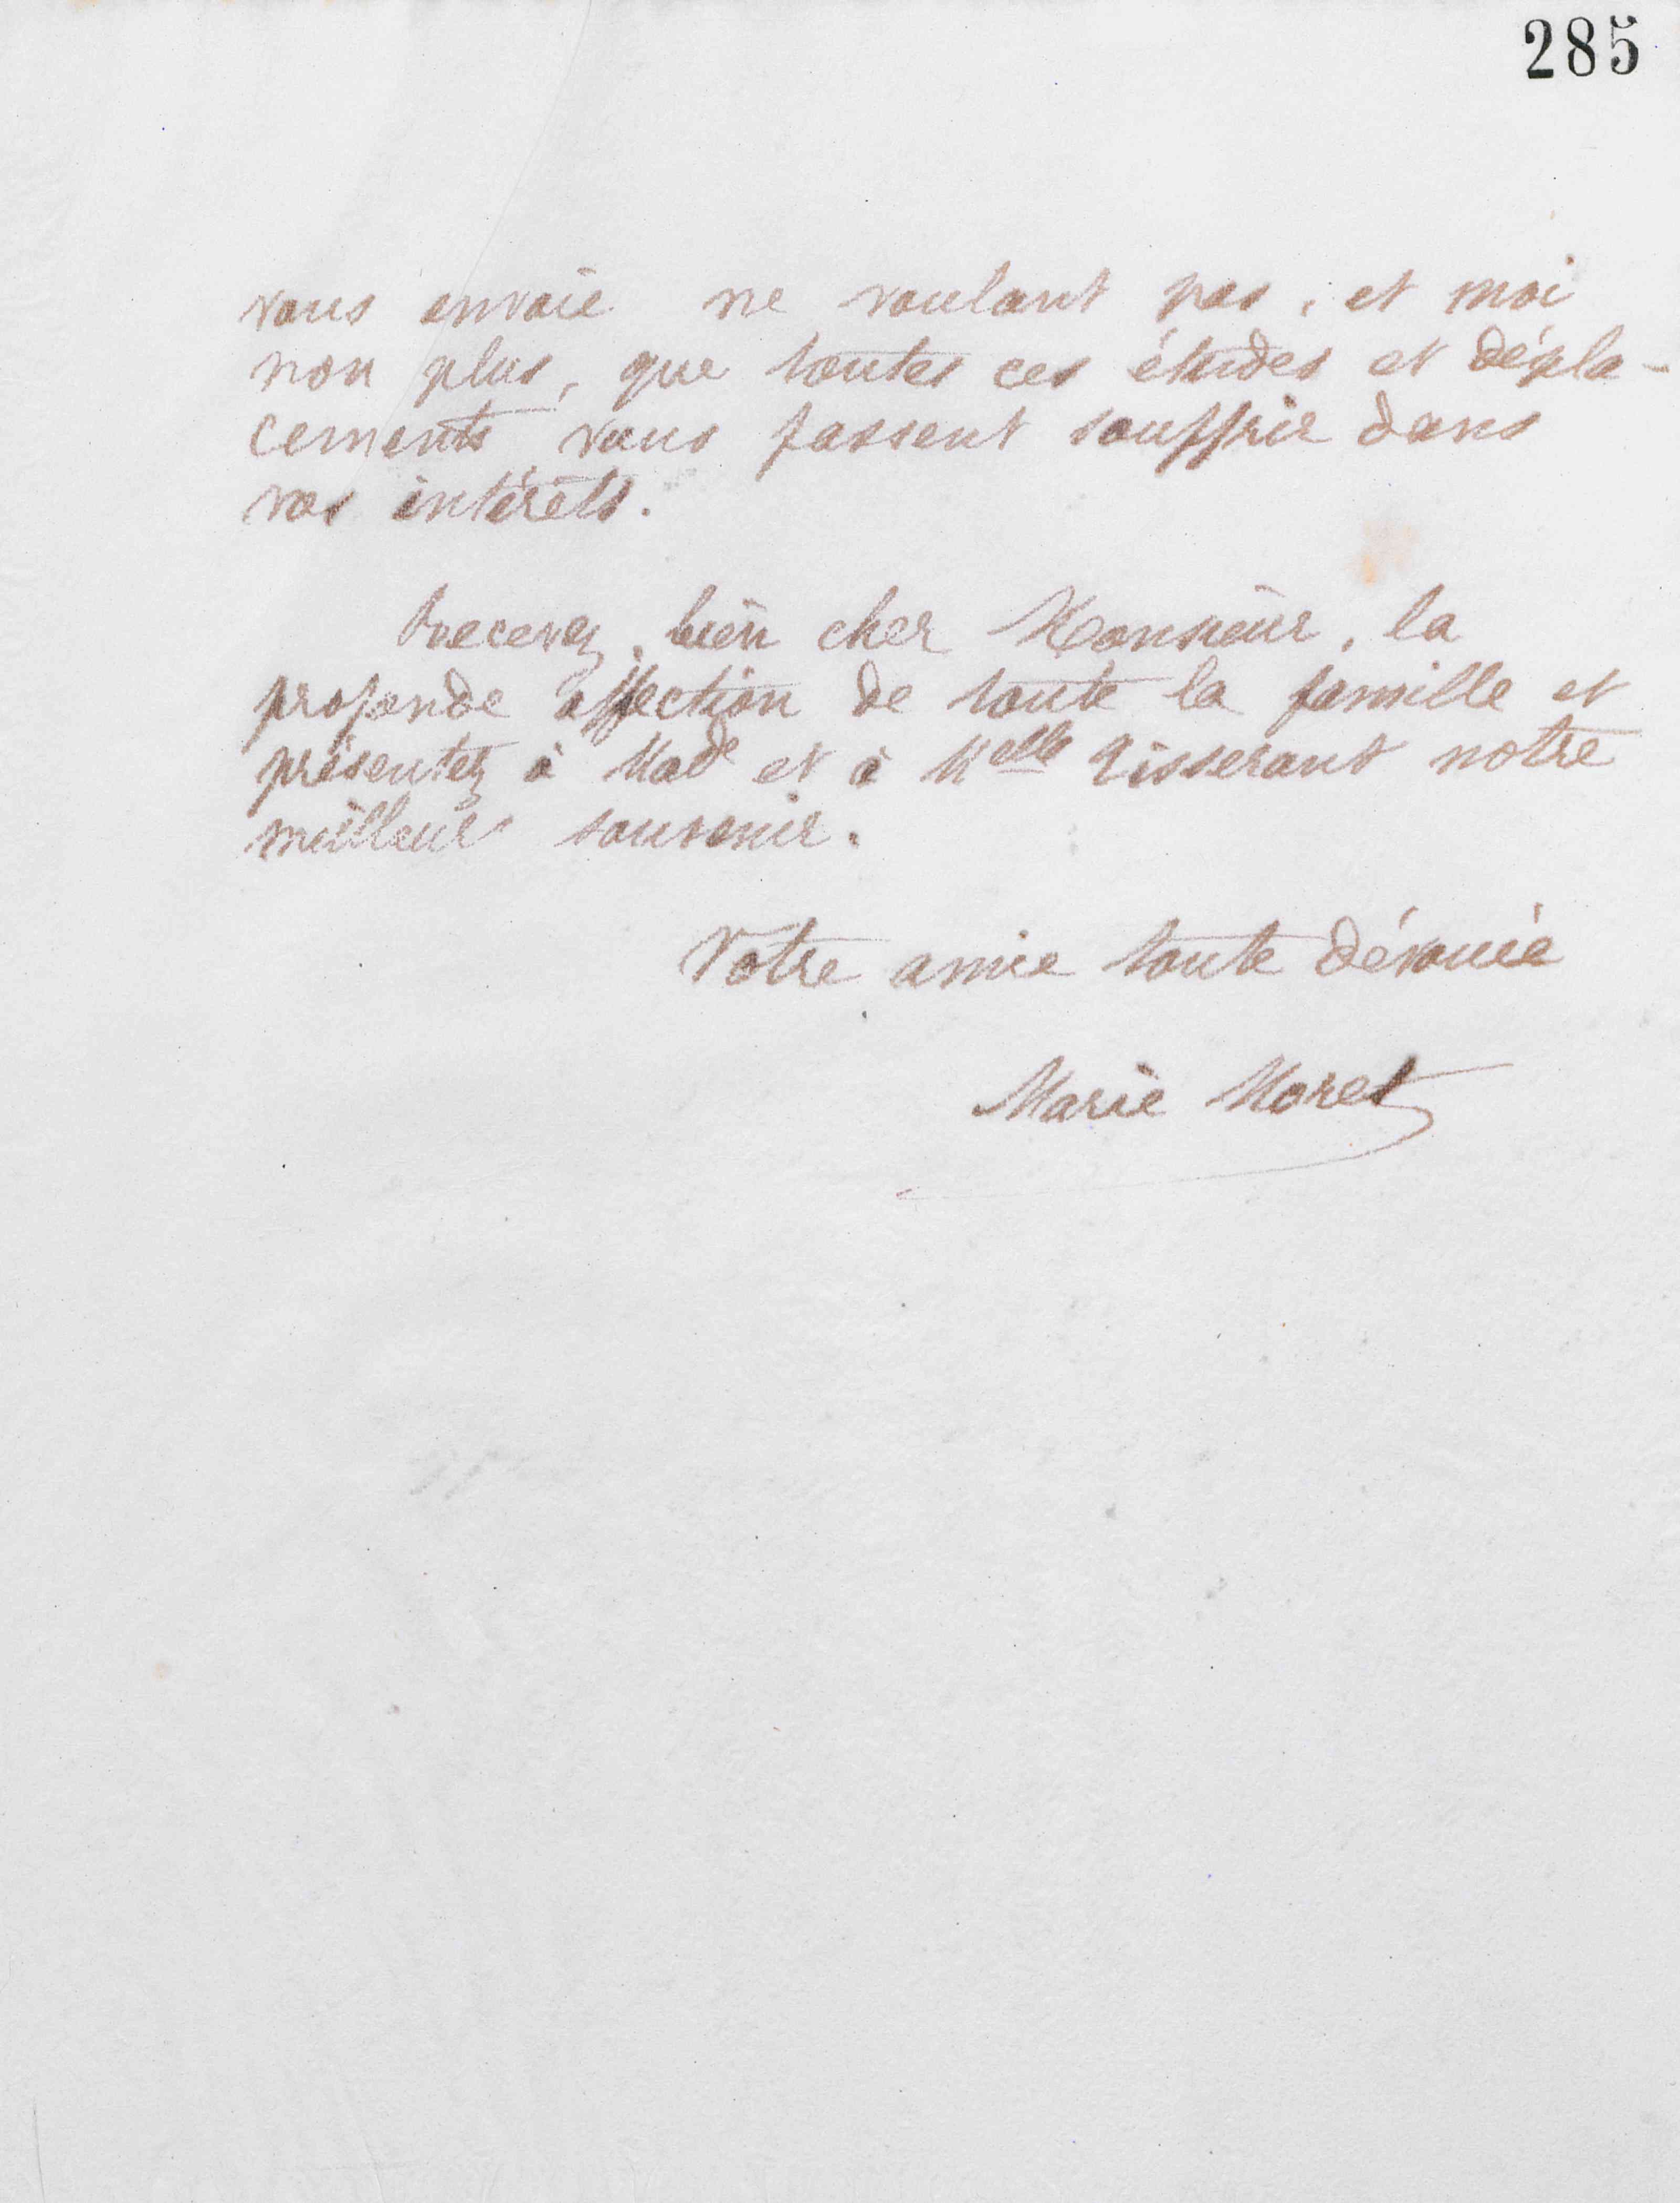 285
vous envoie ne voulant pas, et moi
non plus, que toutes ces études et dépla-
cements vous fassent souffrir dans
vos intérêts.
Recevez, bien cher Monsieur, la
profonde affection de toute la famille et
présentez à Made et à Melle Tisserant notre
meilleur souvenir.
Votre amie toute dévouée
Marie Moret